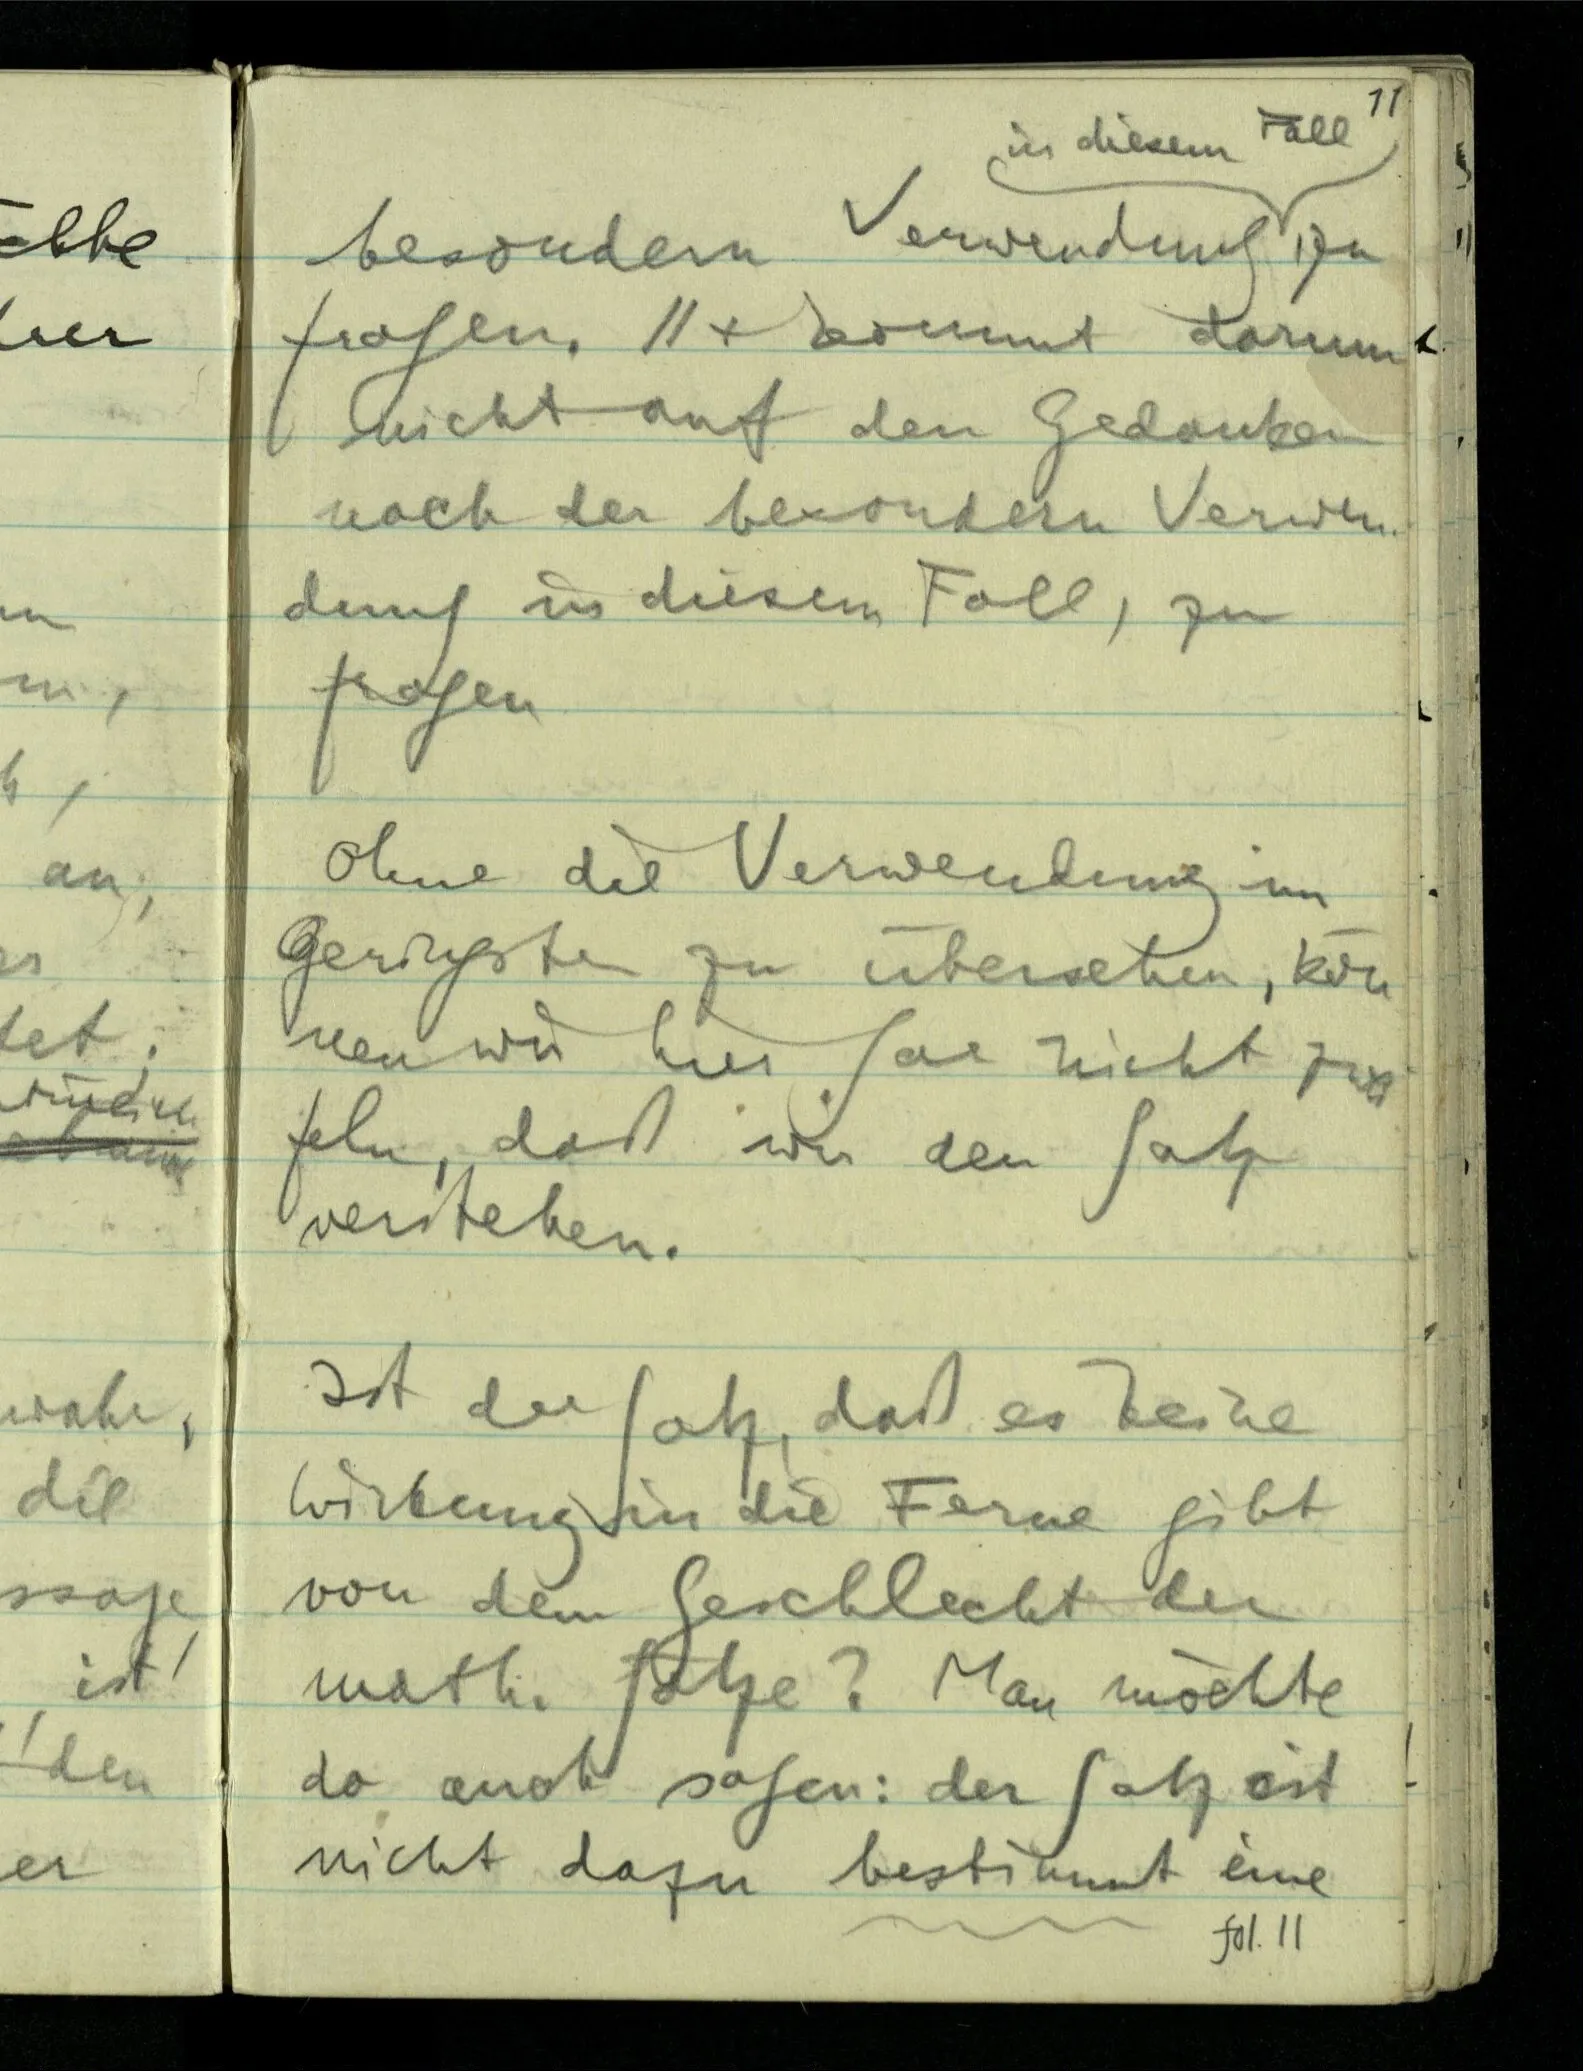 11
in diesem Fall
besondern Verwendung, zu
fragen. // & kommt darum
nicht auf den Gedanken
nach der besondern Verwen-
dung in diesem Fall, zu
fragen
Ohne die Verwendung im
Geringsten zu übersehen, kön
nen wir hier gar nicht zwei
feln, daß wir den Satz
verstehen.
Ist der Satz, daß es keine
Wirkung in die Ferne gibt
von dem Geschlecht der
math. Sätze? Man möchte
da auch sagen: der Satz ist
nicht dazu bestimmt eine
fol. 11